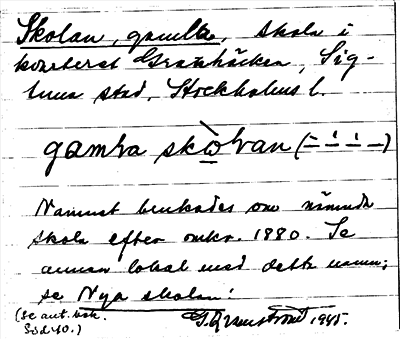 Skolan, gamla, skola i
kvarteret Granhäcken, Sig-
tuna stad, Stockholms l.
gamla skòlan (– – – –)
Namnet brukades om nämnda
skola efter omkr. 1880. Se
annan lokal med detta namn;
se Nya skolan.
(Se ant. bok.
Sid. 40.)
1945.